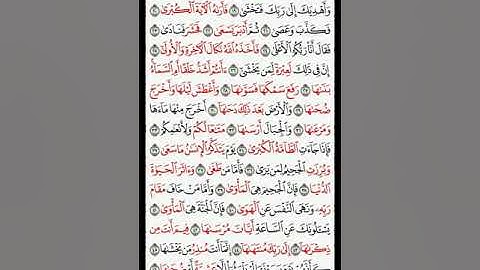 وَأَهْدِيَكَ إِلَىٰ رَبِّكَ فَتَخْشَىٰ ١٩ فَأَرَىٰهُ ٱلْـَٔايَةَ ٱلْكُبْرَىٰ ٢٠
فَكَذَّبَ وَعَصَىٰ ٢١ ثُمَّ أَدْبَرَ يَسْعَىٰ ٢٢ فَحَشَرَ فَنَادَىٰ ٢٣
فَقَالَ أَنَا۠ رَبُّكُمُ ٱلْأَعْلَىٰ ٢٤ فَأَخَذَهُ ٱللَّهُ نَكَالَ ٱلْـَٔاخِرَةِ وَٱلْأُولَىٰٓ ٢٥
إِنَّ فِى ذَٰلِكَ لَعِبْرَةً لِّمَن يَخْشَىٰٓ ٢٦ ءَأَنتُمْ أَشَدُّ خَلْقًا أَمِ ٱلسَّمَآءُ
بَنَىٰهَا ٢٧ رَفَعَ سَمْكَهَا فَسَوَّىٰهَا ٢٨ وَأَغْطَشَ لَيْلَهَا وَأَخْرَجَ
ضُحَىٰهَا ٢٩ وَٱلْأَرْضَ بَعْدَ ذَٰلِكَ دَحَىٰهَآ ٣٠ أَخْرَجَ مِنْهَا مَآءَهَا
وَمَرْعَىٰهَا ٣١ وَٱلْجِبَالَ أَرْسَىٰهَا ٣٢ مَتَٰعًا لَّكُمْ وَلِأَنْعَٰمِكُمْ ٣٣
فَإِذَا جَآءَتِ ٱلطَّآمَّةُ ٱلْكُبْرَىٰ ٣٤ يَوْمَ يَتَذَكَّرُ ٱلْإِنسَٰنُ مَا سَعَىٰ ٣٥
وَبُرِّزَتِ ٱلْجَحِيمُ لِمَن يَرَىٰ ٣٦ فَأَمَّا مَن طَغَىٰ ٣٧ وَءَاثَرَ ٱلْحَيَوٰةَ
ٱلدُّنْيَا ٣٨ فَإِنَّ ٱلْجَحِيمَ هِىَ ٱلْمَأْوَىٰ ٣٩ وَأَمَّا مَنْ خَافَ مَقَامَ
رَبِّهِۦ وَنَهَى ٱلنَّفْسَ عَنِ ٱلْهَوَىٰ ٤٠ فَإِنَّ ٱلْجَنَّةَ هِىَ ٱلْمَأْوَىٰ ٤١
يَسْـَٔلُونَكَ عَنِ ٱلسَّاعَةِ أَيَّانَ مُرْسَىٰهَا ٤٢ فِيمَ أَنتَ مِن
ذِكْرَىٰهَآ ٤٣ إِلَىٰ رَبِّكَ مُنتَهَىٰهَآ ٤٤ إِنَّمَآ أَنتَ مُنذِرُ مَن يَخْشَىٰهَا ٤٥